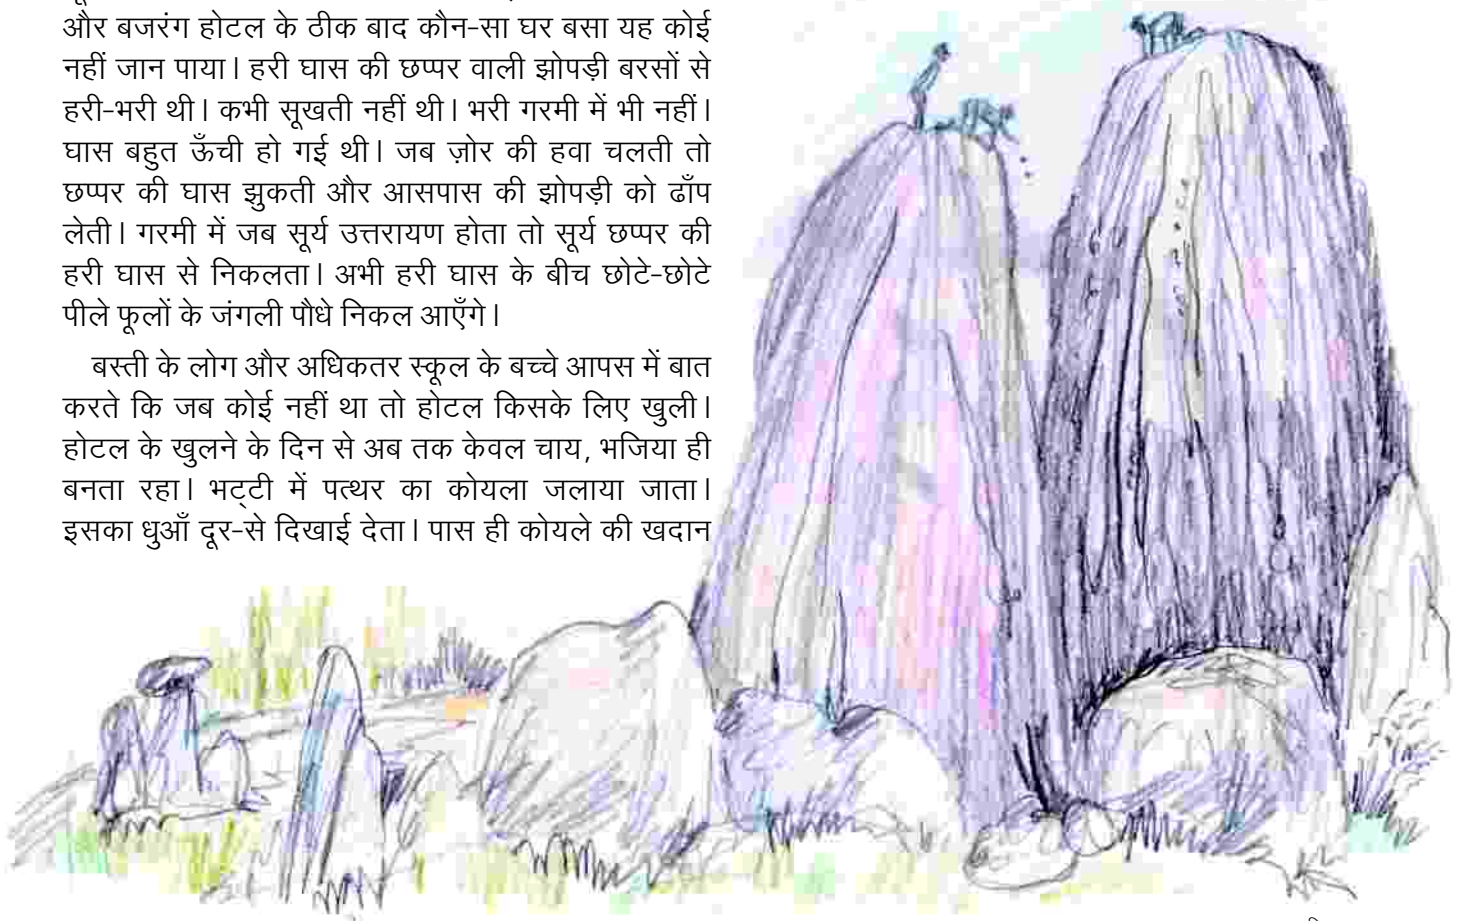 और बजरंग होटल के ठीक बाद कौन-सा घर बसा यह कोई
नहीं जान पाया। हरी घास की छप्पर वाली झोपड़ी बरसों से
हरी-भरी थी। कभी सूखती नहीं थी। भरी गरमी में भी नहीं।
घास बहुत ऊँची हो गई थी। जब ज़ोर की हवा चलती तो
छप्पर की घास झुकती और आसपास की झोपड़ी को ढाँप
लेती। गरमी में जब सूर्य उत्तरायण होता तो सूर्य छप्पर की
हरी घास से निकलता। अभी हरी घास के बीच छोटे-छोटे
पीले फूलों के जंगली पौधे निकल आएँगे।
बस्ती के लोग और अधिकतर स्कूल के बच्चे आपस में बात
करते कि जब कोई नहीं था तो होटल किसके लिए खुली।
होटल के खुलने के दिन से अब तक केवल चाय, भजिया ही
बनता रहा। भट्टी में पत्थर का कोयला जलाया जाता।
इसका धुआँ दूर-से दिखाई देता। पास ही कोयले की खदान